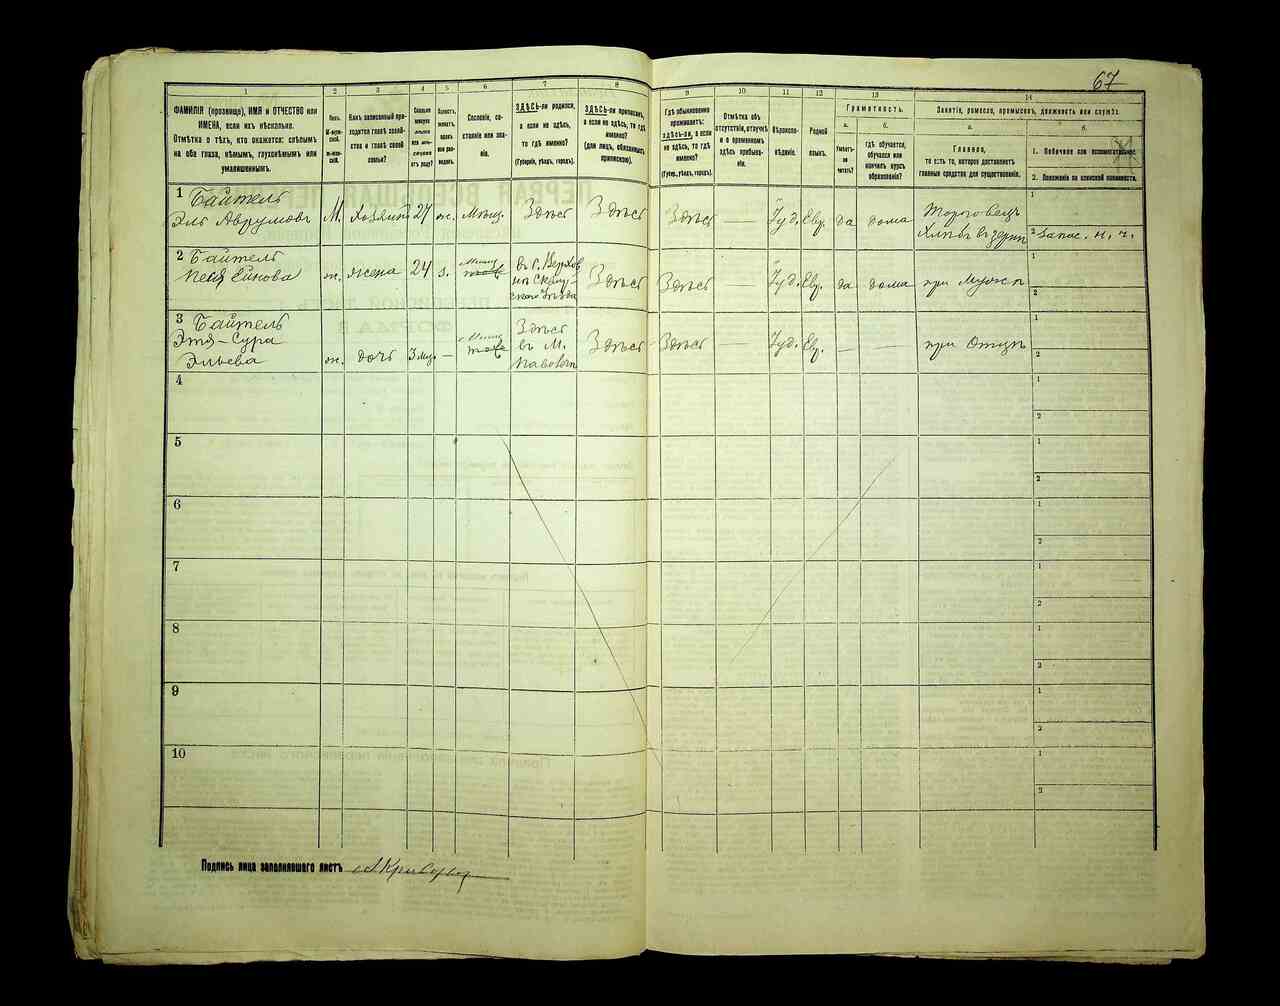 67
1
ФАМИЛІЯ (прозвище), ИМЯ и ОТЧЕСТВО или
ИМЕНА, если ихъ нѣсколько.
Отмѣтка о тѣхъ, кто окажется: слѣпымъ
на оба глаза, нѣмымъ, глухонѣмымъ или
умалишеннымъ.
2
Полъ.
М-муж-
ской.
ж-жен-
скій.
3
Какъ записанный при-
ходится главѣ хозяй-
ства и главѣ своей
семьи?
4
Сколько
минуло
лѣтъ
или мѣ-
сяцевъ
отъ роду?
5
Холостъ,
женатъ,
вдовъ
или раз-
веденъ.
6
Сословіе, со-
стояніе или зва-
ніе.
7
ЗДѢСЬ-ли родился,
а если не здѣсь,
то гдѣ именно?
(Губернія, уѣздъ, городъ).
8
ЗДѢСЬ-ли приписанъ,
а если не здѣсь, то гдѣ
именно?
(для лицъ, обязанныхъ
припискою).
9
Гдѣ обыкновенно
проживаетъ:
здѣсь-ли, а если
не здѣсь, то гдѣ
именно?
(Губерн., уѣздъ, городъ).
10
Отмѣтка объ
отсутствіи, отлучкѣ
и о временномъ
здѣсь пребыва-
ніи.
11
Вѣроиспо-
вѣданіе.
12
Родной
языкъ.
13
Грамотность.
а.
Умѣетъ-
ли
читать?
б.
гдѣ обучается,
обучался или
кончилъ курсъ
образованія?
14
Занятіе, ремесло, промыселъ, должность или служба.
а.
Главное,
то есть то, которое доставляетъ
главныя средства для существованія.
б.
1. Побочное или вспомогательное.
2. Положеніе по воинской повинности.
1 Байтель
Эль Аврумовъ М. Хозяинъ 27 ж. Мѣщ. Здѣсь Здѣсь Здѣсь — Іуд. Евр. да дома Торговецъ
Хлѣбъ въ зерни
1
2 Запас. н. ч.
2 Байтель
ж. жена 24 з. Мѣщ въ г. Верхов
Здѣсь Здѣсь — Іуд. Евр. да дома при Мужѣ
1
2
3 Байтель
Этя-Сура
Эльева ж. дочь 3 мѣ. — Мѣщ Здѣсь
въ М.
Здѣсь Здѣсь — Іуд. Евр. — — при Отцѣ
1
2
4
1
2
5
1
2
6
1
2
7
1
2
8
1
2
9
1
2
10
1
2
Подпись лица заполнявшаго листъ